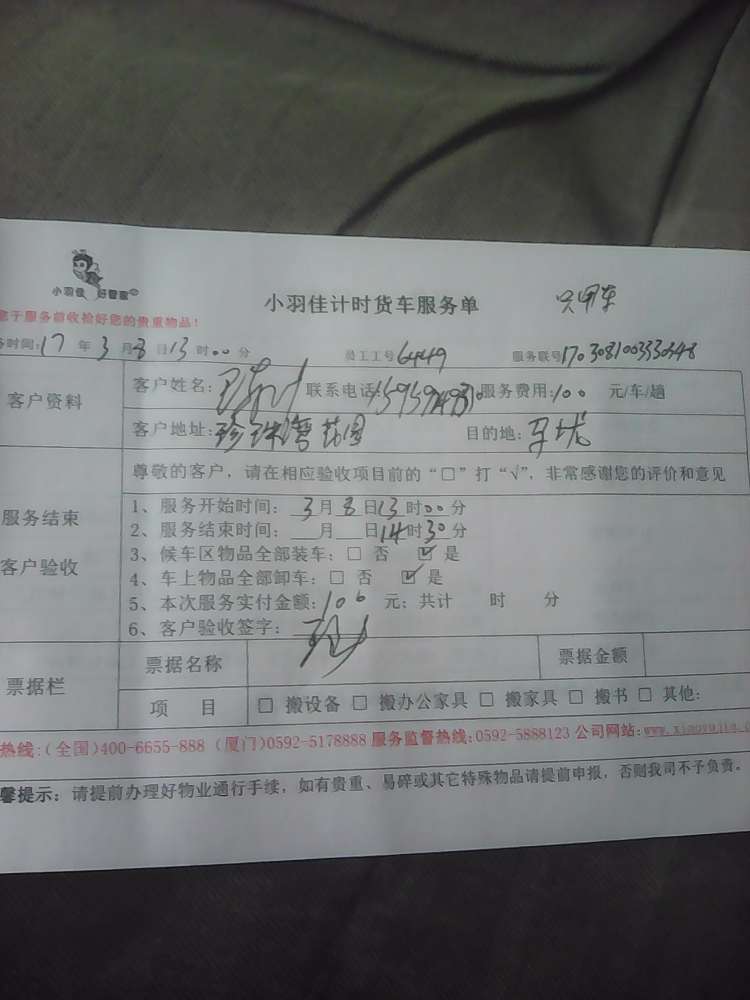 小羽佳 好管家
小羽佳计时货车服务单
只用车
于服务前收拾好您的贵重物品！
时间:17年3月8日13时00分 员工工号6449 服务联号170308100330648
客户资料
客户姓名: 联系电话 服务费用:100 元/车/趟
客户地址:珍珠湾花园 目的地:
服务结束
客户验收
尊敬的客户，请在相应验收项目前的“□”打“√”，非常感谢您的评价和意见
1、服务开始时间：3月8日13时00分
2、服务结束时间：__月__日14时30分
3、候车区物品全部装车：□ 否 ☑ 是
4、车上物品全部卸车：□ 否 ☑ 是
5、本次服务实付金额:100 元；共计 时 分
6、客户验收签字：
票据栏
票据名称 票据金额
项 目 □ 搬设备 □ 搬办公家具 □ 搬家具 □ 搬书 □ 其他:
热线:(全国)400-6655-888 (厦门)0592-5178888 服务监督热线:0592-5888123 公司网站:
馨提示：请提前办理好物业通行手续，如有贵重、易碎或其它特殊物品请提前申报，否则我司不予负责。